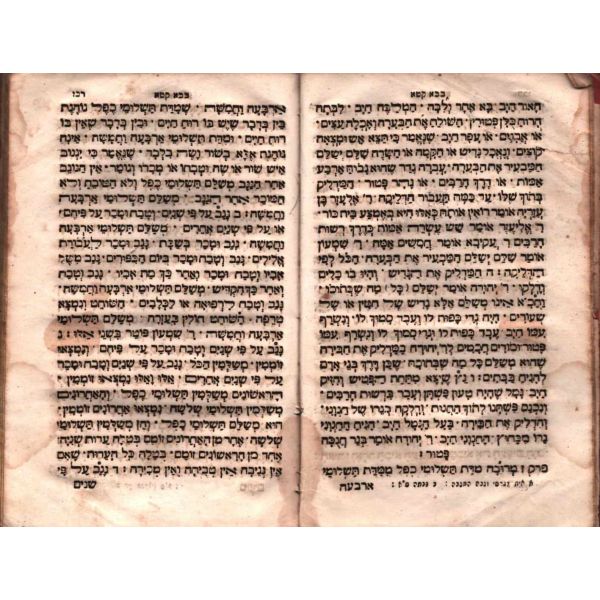 בבא קמא
האור חייב · בא אחר ולבה · המלבה חייב · לבתה
הרוח כולן פטורין · השולח את הבערה ואכלה עצים ·
או אבנים · או עפר חייב שנאמר כי תצא אש ומצאה
קוצים ונאכל גדיש או הקמה או השדה שלם ישלם
המבעיר את הבערה עברה גדר שהוא גבוה ארבע
אמות · או דרך הרבים · או נהר פטור · המדליק
בתוך שלו עד כמה תעבור הדליקה · ר' אלעזר בן
עזריה אומר רואין אותה כאלו היא באמצע בית כור ·
ר' אליעזר אומר שש עשרה אמה כדרך רשות
הרבים ר' עקיבא אומר חמשים אמה ר' שמעון
אומר שלם ישלם המבעיר את הבערה הכל לפי
הדליקה : ה המדליק את הגדיש · והיו בו כלים
ודלקו · ר' יהודה אומר ישלם (כל) מה שבתוכו ·
וחכ"א אינו משלם אלא גדיש של חטין או של
שעורים · היה גדי כפות לו ועבד סמוך לו ונשרף
עמו חייב · עבד כפות לו וגדי סמוך לו · ונשרף עמו
פטור ומודים חכמים לר' יהודה במדליק את הבירה
שהוא משלם כל מה שבתוכו שכן דרך בני אדם
להניח בבתים : ו גץ שיצא מתחת הפטיש והזיק
חייב · גמל שהיה טעון פשתן ועבר ברשות הרבים ·
ונכנס פשתנו לתוך החנות ודלקה בנרו של חנוני
והדליק את הבירה · בעל הגמל חייב · הניח חנוני
נרו מבחוץ החנוני חייב · ר' יהודה אומר בנר חנוכה
פטור :
פרק ז מרובה מדת תשלומי כפל ממדת תשלומי
ארבעה
בבא קמא
ארבעה וחמשה · שמדת תשלומי כפל נוהגת
בין בדבר שיש בו רוח חיים · ובין בדבר שאין בו
רוח חיים · ומדת תשלומי ארבעה וחמשה · אינה
נוהגת אלא בשור ושה בלבד · שנאמר כי יגנוב
איש שור או שה וטבחו או מכרו וגומר · אין הגונב
אחר הגנב משלם תשלומי כפל ולא הטובח ולא
המוכר אחר הגנב משלם תשלומי ארבעה
וחמשה : ב גנב על פי שנים וטבח ומכר על פיהם
או על פי שנים אחרים משלם תשלומי ארבעה
וחמשה גנב ומכר בשבת · גנב ומכר לעבודת
אלילים · גנב וטבח ביום הכפורים · גנב משל
אביו וטבח ומכר ואחר כך מת אביו · גנב וטבח
ואחר כך הקדיש · משלם תשלומי ארבעה וחמשה ·
גנב וטבח לרפואה או לכלבים · השוחט ונמצא
טרפה · השוחט חולין בעזרה · משלם תשלומי
ארבעה וחמשה · ר' שמעון פוטר בשני אלו : ג
גנב על פי שנים וטבח ומכר על פיהם · ונמצאו
זוממין · משלמין הכל · גנב על פי שנים וטבח
ומכר על פי שנים אחרים · אלו ואלו נמצאו זוממין ·
הראשונים משלמין תשלומי כפל · והאחרונים
משלמין תשלומי שלשה · נמצאו אחרונים זוממין ·
הוא משלם תשלומי כפל · והן משלמין תשלומי
שלשה · אחד מן האחרונים זומם בטלה עדות שניה
אחד מן הראשונים זומם בטלה כל העדות · שאם
אין גניבה אין טביחה ואין מכירה : ד גנב על פי
שנים